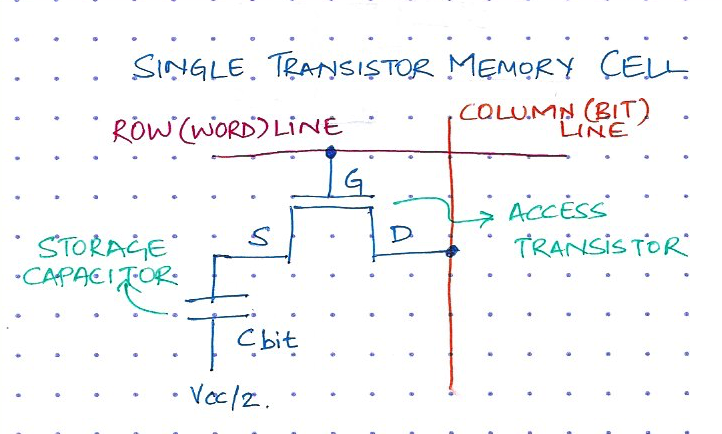 SINGLE TRANSISTOR MEMORY CELL
ROW (WORD) LINE
COLUMN (BIT)
LINE
G
S
D
ACCESS
TRANSISTOR
STORAGE
CAPACITOR
Cbit
Vcc/2.